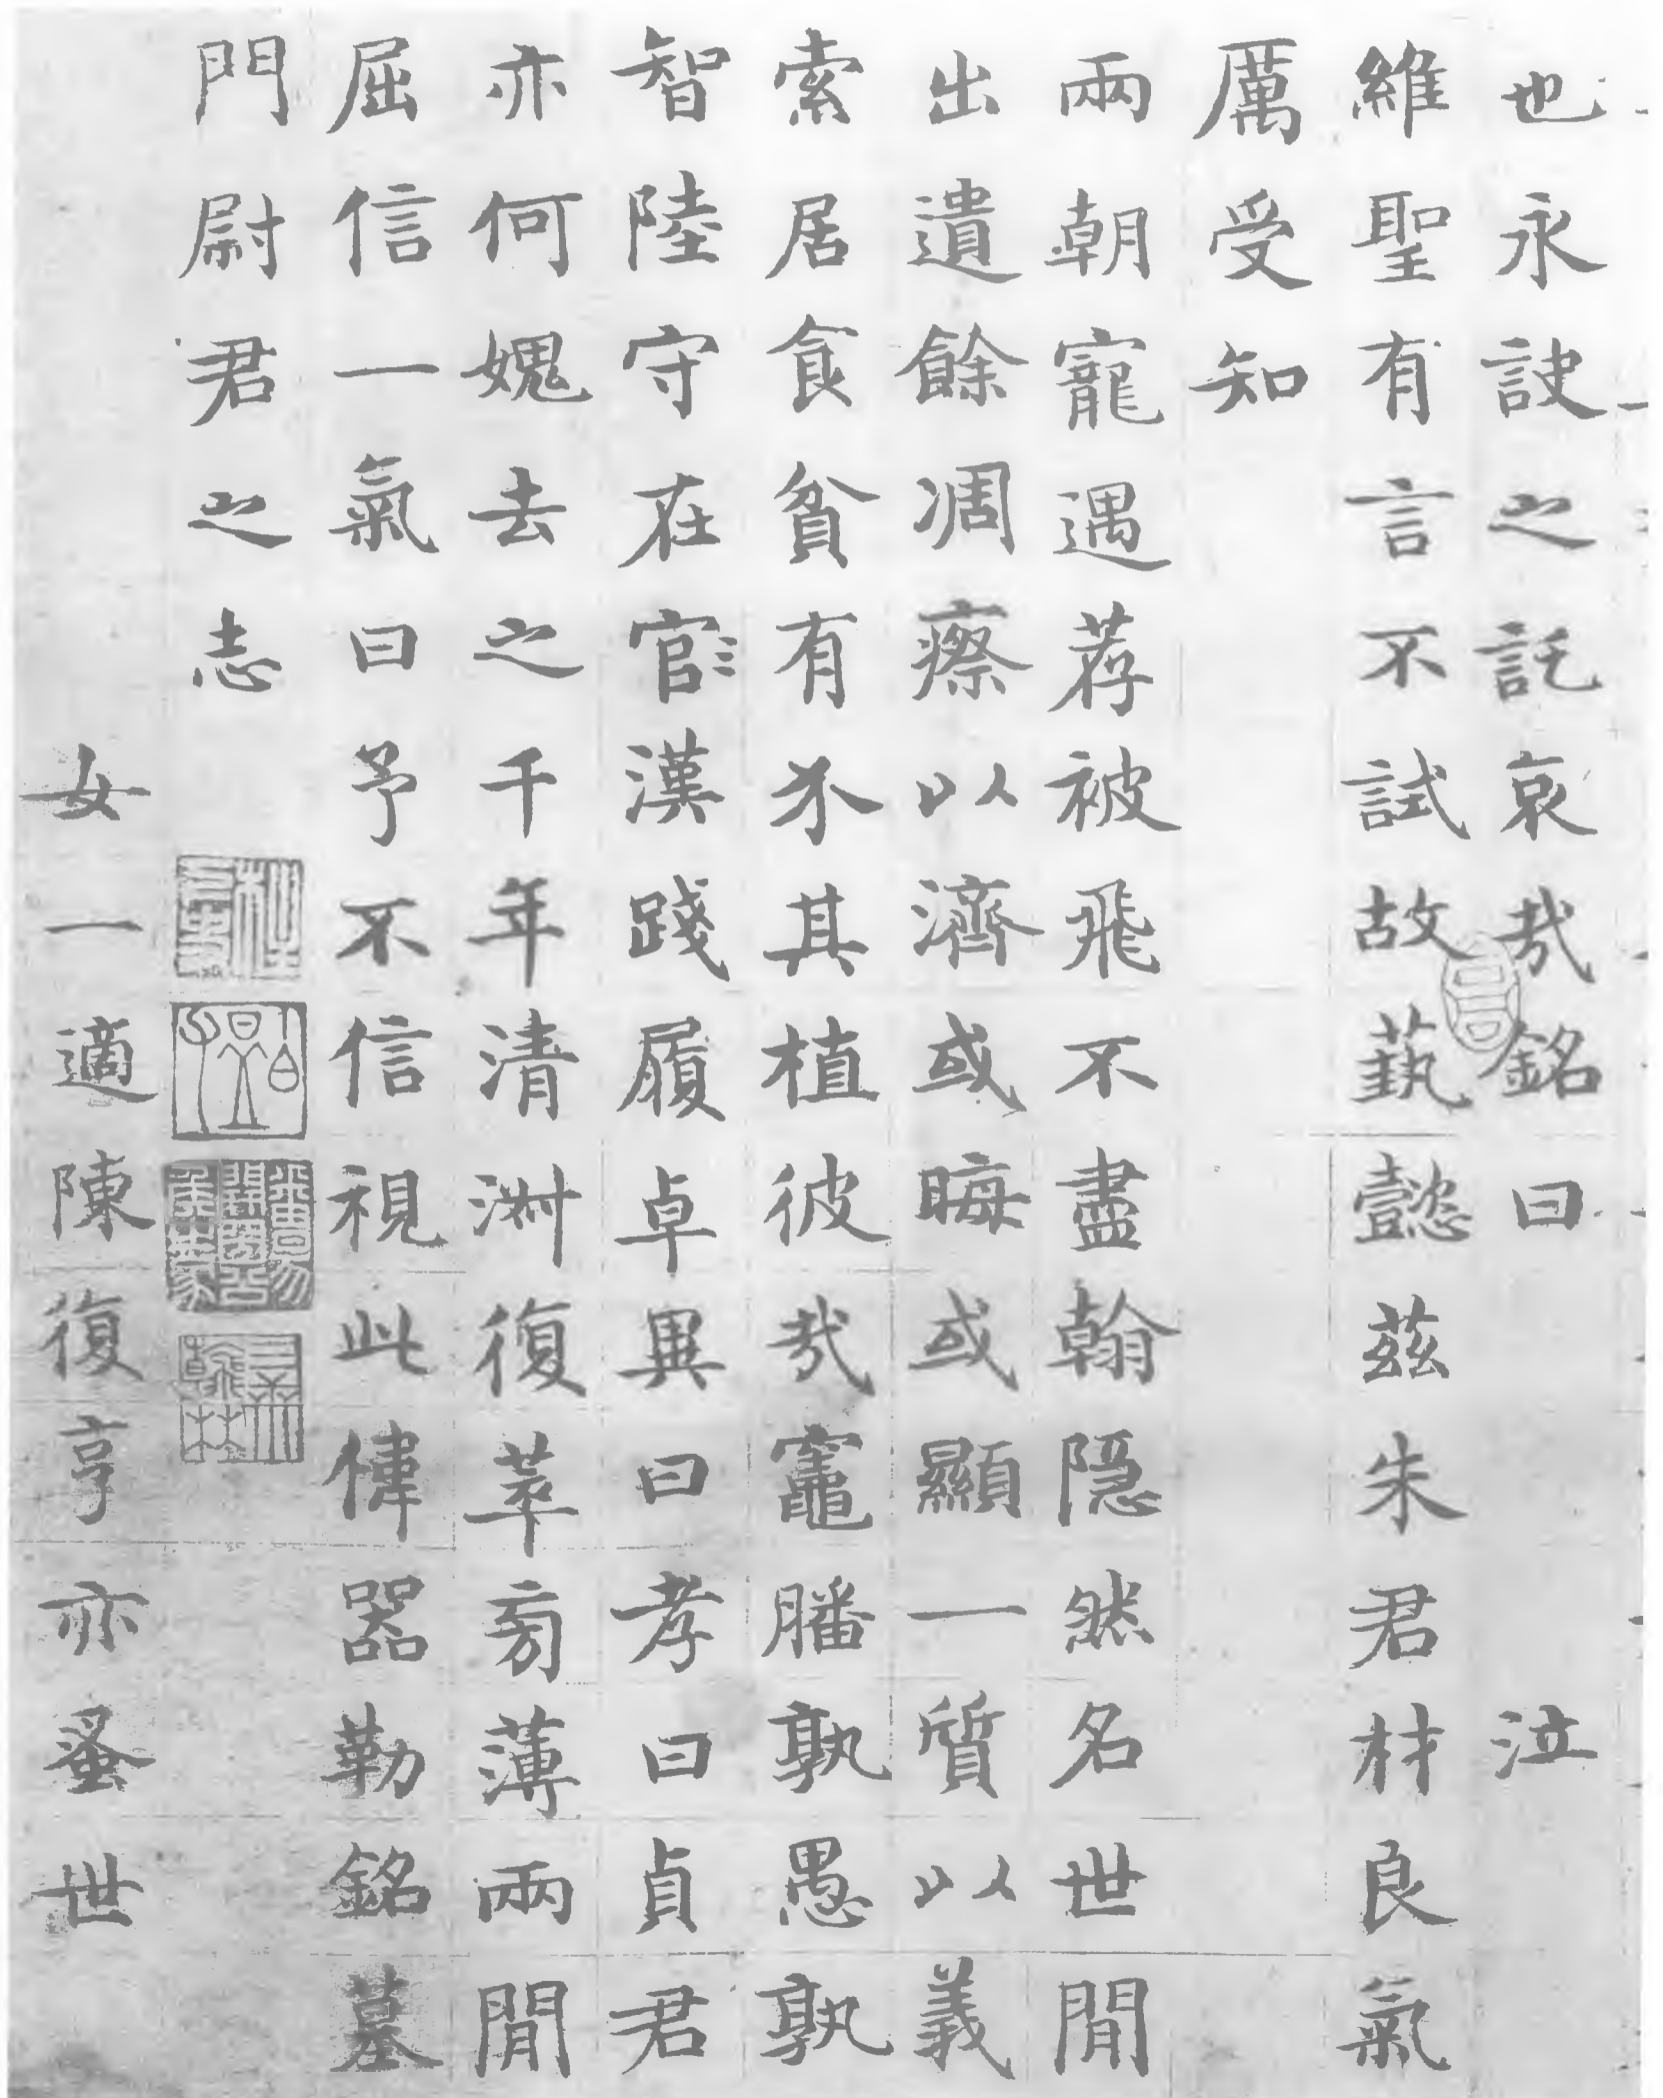 也永訣之託哀哉銘曰 泣
維聖有言不試故藝懿茲朱君材良氣
厲受知
兩朝寵遇荐被飛不盡翰隱然名世閒
出遺餘凋瘵以濟或晦或顯一質以義
索居食貧有不其植彼哉竈膰孰愚孰
智陸守在官漢踐履卓異曰孝曰貞君
亦何媿去之千年清渊復萃旁薄兩閒
屈信一氣曰予不信視此偉器勒銘墓
門尉君之志
女一適陳復亨亦蚤世